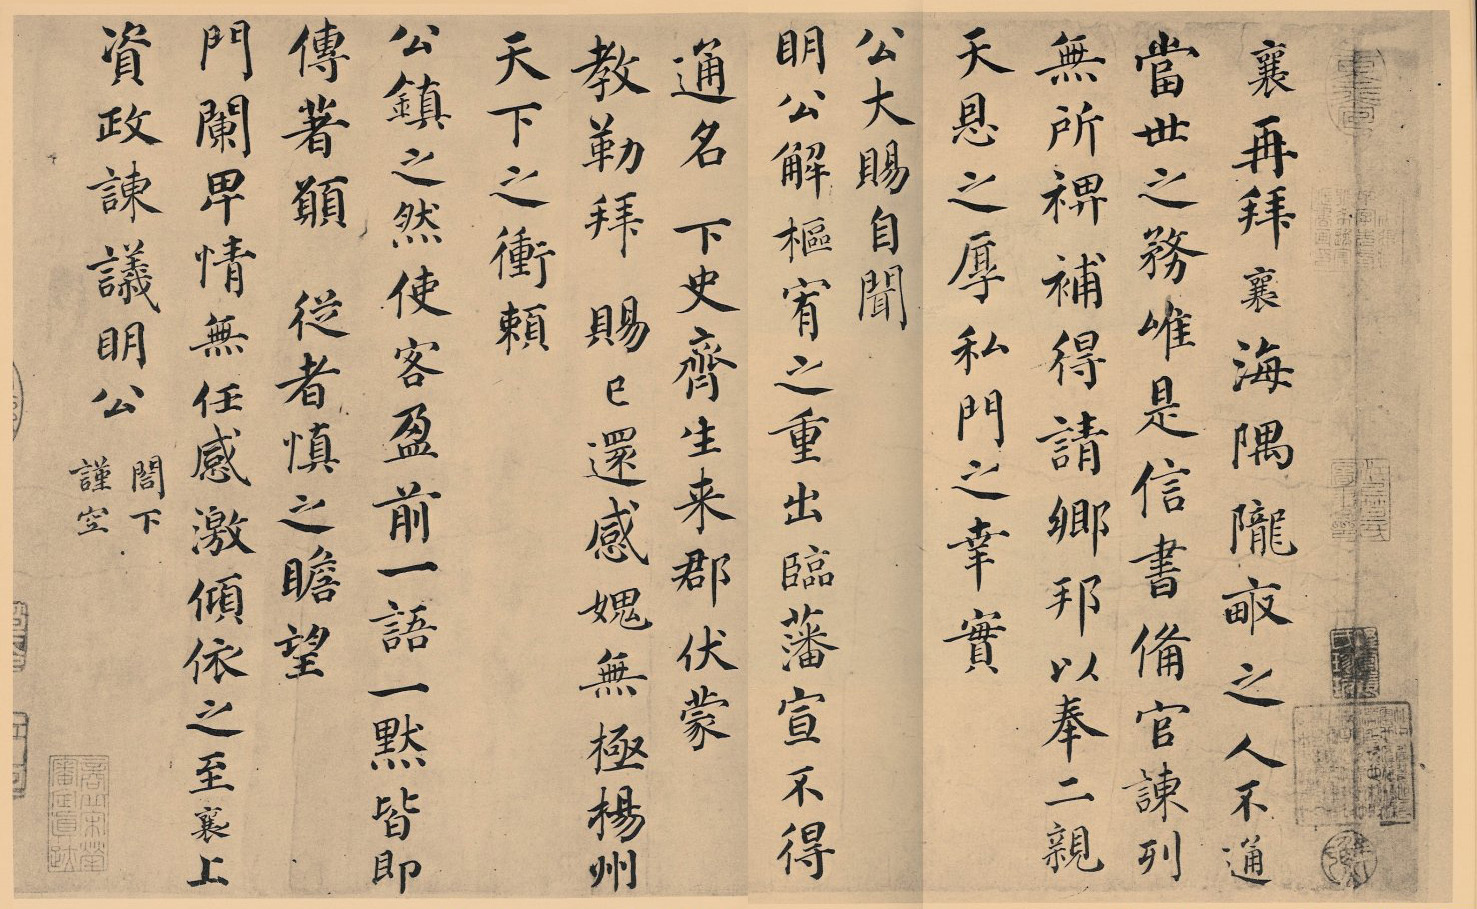 襄再拜襄海隅隴畝之人不通
當世之務唯是信書備官諫列
無所裨補得請鄉邦以奉二親
天恩之厚私門之幸實
公大賜自聞
明公解樞宥之重出臨藩宣不得
通名 下史齊生来郡伏蒙
教勒拜 賜已還感媿無極楊州
天下之衝賴
公鎮之然使客盈前一語一默皆即
傳著願 從者慎之瞻望
門闌卑情無任感激傾依之至襄上
資政諫議明公
閤下
謹空